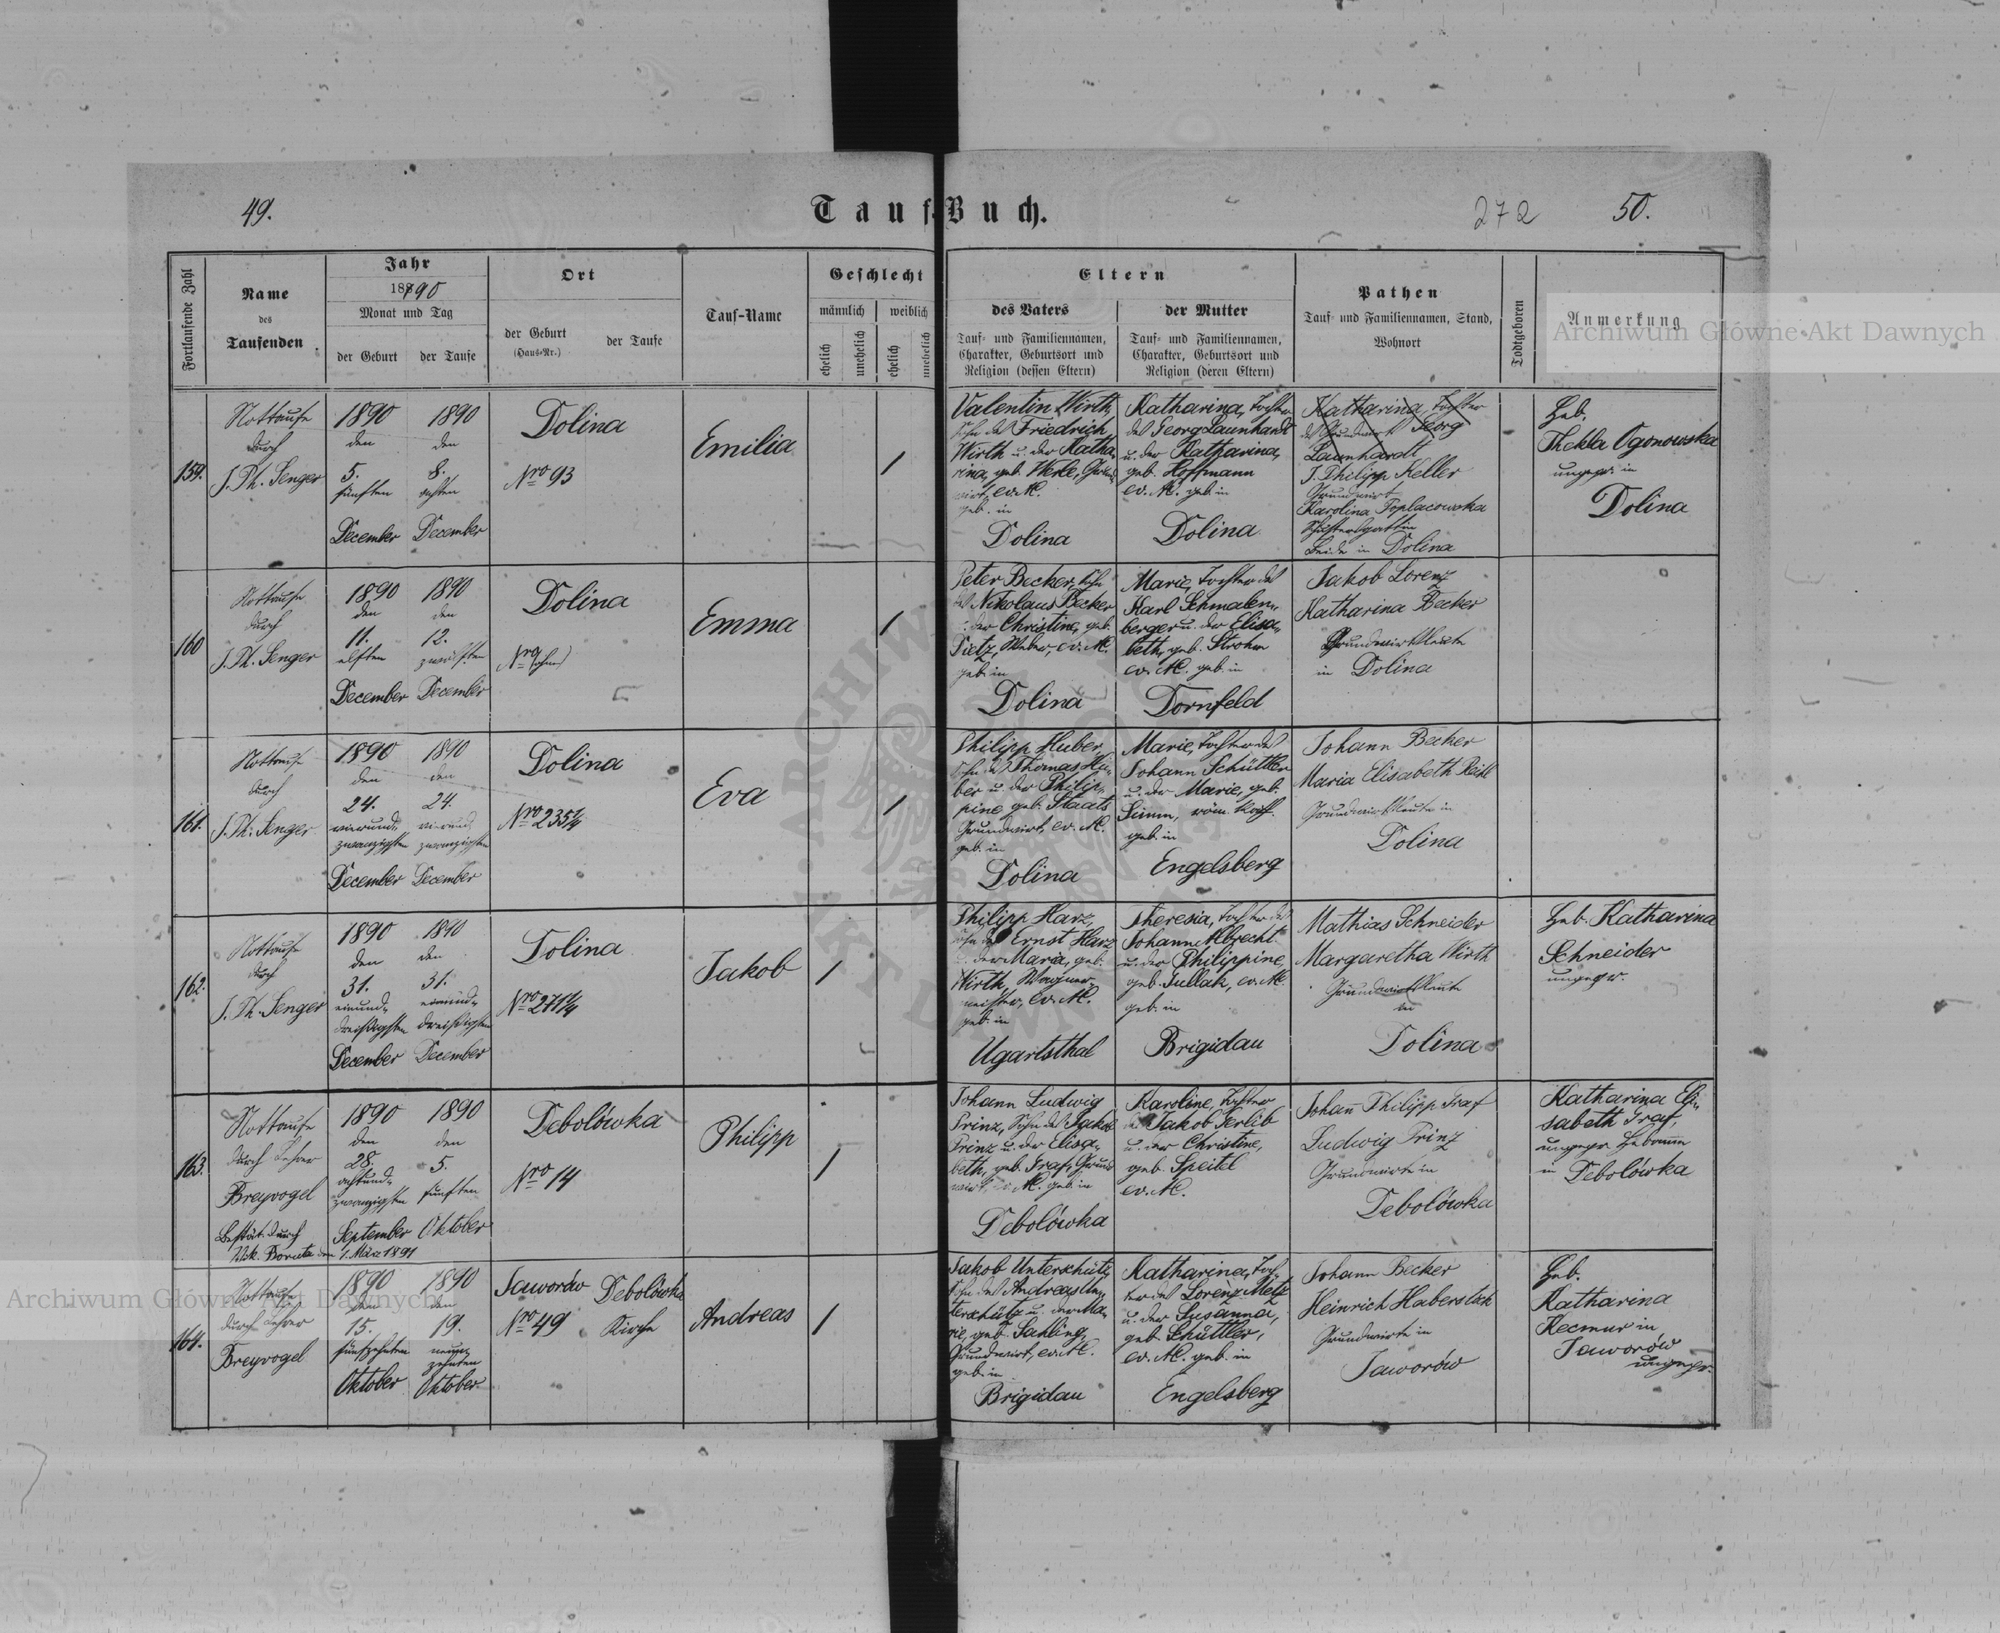 49.
Tauf-Buch.
272
50.
Fortlaufende Zahl
Name
des
Taufenden
Jahr
1890
Monat und Tag
der Geburt
der Taufe
Ort
der Geburt
(Haus-Nr.)
der Taufe
Tauf-Name
Geschlecht
männlich
weiblich
ehelich
unehelich
ehelich
unehelich
Eltern
des Vaters
Tauf- und Familiennamen,
Charakter, Geburtsort und
Religion (dessen Eltern)
der Mutter
Tauf- und Familiennamen,
Charakter, Geburtsort und
Religion (deren Eltern)
Pathen
Tauf- und Familiennamen, Stand,
Wohnort
Todtgeboren
Anmerkung
Archiwum Główne Akt Dawnych
159.
Nottaufe
durch
J. Ph. Senger
1890
den
5.
fünften
December
1890
den
8.
achten
December
Dolina
Nro 93
Emilia
/
Valentin Wirth,
Sohn des Friedrich
Wirth u. der Katha-
rina, geb. Grund-
wirt, ev. AC.
geb. in
Dolina
Katharina, Tochter
des Georg Launhardt
u. der Katharina,
geb. Hoffmann
ev. AC. geb. in
Dolina
Katharina, Tochter
des Grundwirt Georg
Launhardt
J. Philipp Keller
Grundwirt
Karolina Poplacowska
beide in Dolina
Heb.
Thekla Ogonowska
ungepr. in
Dolina
160
Nottaufe
durch
J. Ph. Senger
1890
den
11.
elften
December
1890
den
12.
zwölften
December
Dolina
Emma
/
Peter Becker, Sohn
des Nikolaus Becker
u. der Christine, geb.
Dietz, Weber, ev. AC.
geb. in
Dolina
Marie, Tochter des
Karl Schmalen-
berger u. der Elisa-
beth, geb. Strohm
ev. AC. geb. in
Dornfeld
Jakob Lorenz
Katharina Becker
Grundwirtsleute
in Dolina
161.
Nottaufe
durch
J. Ph. Senger
1890
den
24.
vierund-
zwanzigsten
December
1890
den
24.
vierund-
zwanzigsten
December
Dolina
Nro 235 1/4
Eva
/
Philipp Huber,
Sohn des Thomas Hu-
ber u. der Philip-
pine geb. Staats
Grundwirt, ev. AC.
geb. in
Dolina
Marie, Tochter des
Johann Schüttler
u. der Marie, geb.
Simm, röm. kath.
geb. in
Engelsberg
Johann Becker
Maria Elisabeth
Grundwirtsleute in
Dolina
162.
Nottaufe
durch
J. Ph. Senger
1890
den
31.
einund-
dreißigsten
December
1890
den
31.
einund-
dreißigsten
December
Dolina
Nro 271 1/4
Jakob
/
Philipp Harz,
Sohn des Ernst Harz
u. der Maria, geb.
Wirth, Wagner-
meister, ev. AC.
geb. in
Ugartsthal
Theresia, Tochter des
Johann Albrecht
u. der Philippine,
geb. ev. AC.
geb. in
Brigidau
Mathias Schneider
Margaretha Wirth
Grundwirtsleute
in
Dolina
Heb. Katharina
Schneider
ungepr.
163.
Nottaufe
durch Lehrer
Breyvogel
Bestät. durch
Vik. Boruta den 1. März 1891
1890
den
28.
achtund-
zwanzigsten
September
1890
den
5.
fünften
Oktober
Debolówka
Nro 14
Philipp
/
Johann Ludwig
Prinz, Sohn des Jakob
Prinz u. der Elisa-
beth, geb. Graf, Grund-
wirt, ev. AC. geb. in
Debolówka
Karoline, Tochter
des Jakob Gerlib
u. der Christine,
geb. Speitel
ev. AC.
Johann Philipp Graf
Ludwig Prinz
Grundwirte in
Debolówka
Katharina Eli-
sabeth Graf,
ungepr. Hebamme
in Debolówka
Archiwum Główne Akt Dawnych
164.
Nottaufe
durch Lehrer
Breyvogel
1890
den
15.
fünfzehnten
Oktober
1890
den
19.
neun-
zehnten
Oktober
Jaworów
Nro 49
Debolówka
Kirche
Andreas
/
Jakob Unterschütz,
Sohn des Andreas Un-
terschütz u. der Ma-
rie, geb. Sahling,
Grundwirt, ev. AC.
geb. in
Brigidau
Katharina, Toch-
ter des Lorenz Metz
u. der Susanna,
geb. Schüttler,
ev. AC. geb. in
Engelsberg
Johann Becker
Heinrich Haberstok
Grundwirte in
Jaworów
Heb.
Katharina
Kecmur in
Jaworów
ungepr.